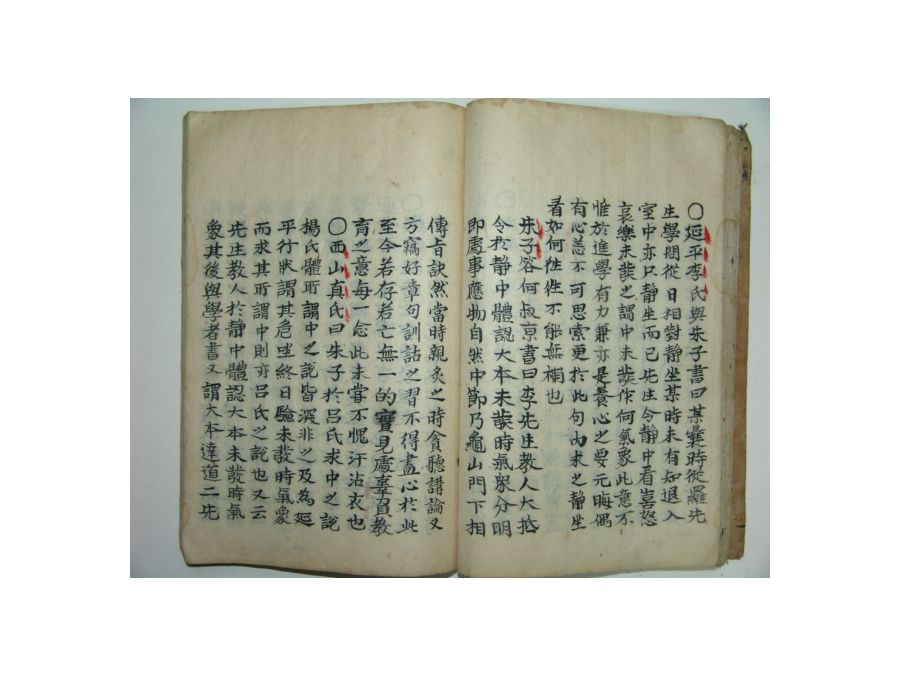 ○延平李氏與朱子書曰某曩時從羅先
生學問終日相對靜坐某時未有知退入
室中亦只靜坐而已先生令靜中看喜怒
哀樂未發之謂中未發作何氣象此意不
惟於進學有力兼亦是養心之要元晦偶
有心恙不可思索更於此句內求之靜坐
看如何徃徃不能無補也
朱子答何叔京書曰李先生教人大抵
令於靜中體認大本未發時氣象分明
即處事應物自然中節乃龜山門下相
傳旨訣然當時親炙之時貪聽講論又
方竊好章句訓詁之習不得盡心於此
至今若存若亡無一的實見處辜負教
育之意每一念此未嘗不愧汗沾衣也
○西山真氏曰朱子於呂氏求中之說
楊氏體所謂中之說皆深非之及為延
平行狀謂其危坐終日驗未發時氣象
而求其所謂中則亦呂氏之說也又云
先生教人於靜中體認大本未發時氣
象其後與學者書又謂大本達道二先